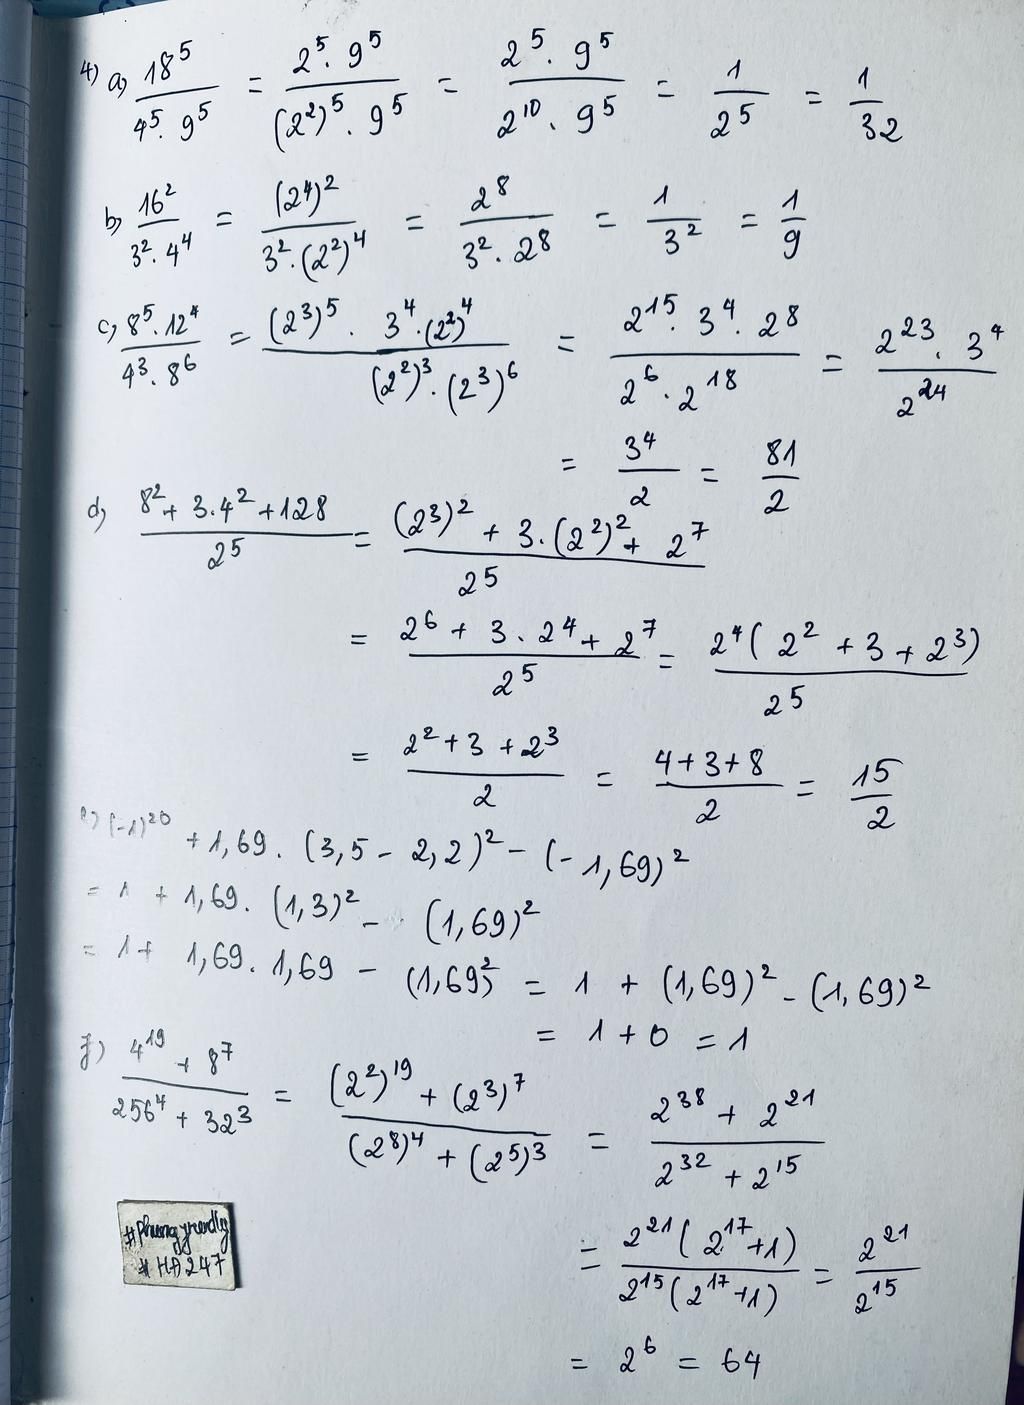 4) a) 18⁵/(4⁵ . 9⁵) = (2⁵ . 9⁵)/((2²)⁵ . 9⁵) = (2⁵ . 9⁵)/(2¹⁰ . 9⁵) = 1/2⁵ = 1/32
b) 16²/(3² . 4⁴) = (2⁴)²/(3² . (2²)⁴) = 2⁸/(3² . 2⁸) = 1/3² = 1/9
c) (8⁵ . 12⁴)/(4³ . 8⁶) = ((2³)⁵ . 3⁴ . (2²)⁴)/((2²)³ . (2³)⁶) = (2¹⁵ . 3⁴ . 2⁸)/(2⁶ . 2¹⁸) = (2²³ . 3⁴)/2²⁴
= 3⁴/2 = 81/2
d) (8² + 3.4² + 128)/2⁵ = ((2³)² + 3.(2²)² + 2⁷)/2⁵
= (2⁶ + 3 . 2⁴ + 2⁷)/2⁵ = 2⁴(2² + 3 + 2³)/2⁵
= (2² + 3 + 2³)/2 = (4+3+8)/2 = 15/2
e) (-1)²⁰ + 1,69 . (3,5 - 2,2)² - (-1,69)²
= 1 + 1,69 . (1,3)² - (1,69)²
= 1 + 1,69 . 1,69 - (1,69)² = 1 + (1,69)² - (1,69)²
= 1 + 0 = 1
f) (4¹⁹ + 8⁷)/(256⁴ + 32³) = ((2²)¹⁹ + (2³)⁷)/((2⁸)⁴ + (2⁵)³) = (2³⁸ + 2²¹)/(2³² + 2¹⁵)
= 2²¹(2¹⁷+1)/2¹⁵(2¹⁷+1) = 2²¹/2¹⁵
= 2⁶ = 64
# HĐ247